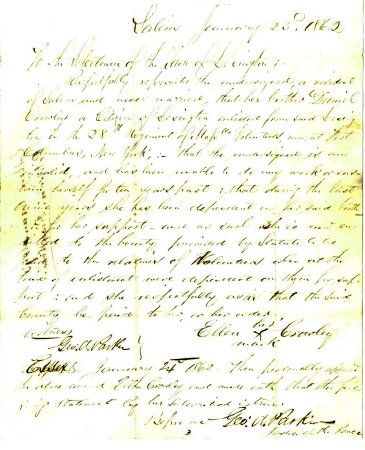 Salem January 22d. 1862,
To the Selectmen of the Town of Lexington :-
Respectfully represents the undersigned, a resident
of Salem and never married, that her brother Daniel
Crowley a Citizen of Lexington enlisted from said Lexing
ton in the 28th Regiment of Mass tts Volunteers now at Fort
Columbus, New York, :- that the undersigned is an
invalid, and has been unable to do any work or sus
tain herself for ten years past : that during the last
years she has been dependent on her said broth
er for her support - and as such she is now en
titled to the bounty, provided by Statute to be
to the relatives of Volunteers who at the
time of enlistment were dependent on them for sup
port : and she respectfully asks that the said
bounty be paid to her or her order.
Witness
Ellen her X mark Crowley
Geo. A. Parkin
Essex ss January 24th 1862. Then personally appeared
the above named Ellen Crowley and made oath that the fore
going statement by her subscribed is true.
Before me Geo. A. Parkin
Justice of the Peace